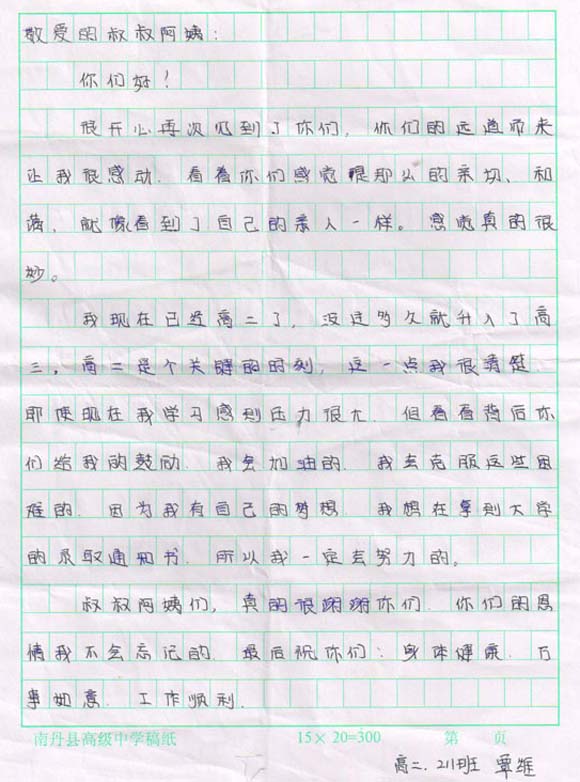 敬爱的叔叔阿姨：
你们好！
很开心再次见到了你们，你们的远道而来
让我很感动．看着你们感觉是那么的亲切、和
蔼，就像看到了自己的亲人一样。感觉真的很
妙。
我现在已经高二了，没过多久就升入了高
三，高二是个关键的时刻，这一点我很清楚
即使现在我学习感到压力很大．但看看背后你
们给我的鼓励．我会加油的．我去克服这些困
难的．因为我有自己的梦想．我想在拿到大学
的录取通知书．所以我一定去努力的。
叔叔阿姨们，真的很谢谢你们．你们的恩
情我不会忘记的．最后祝你们：身体健康．万
事如意．工作顺利．
南丹县高级中学稿纸 15×20=300 第 页
高二．211班 覃雄